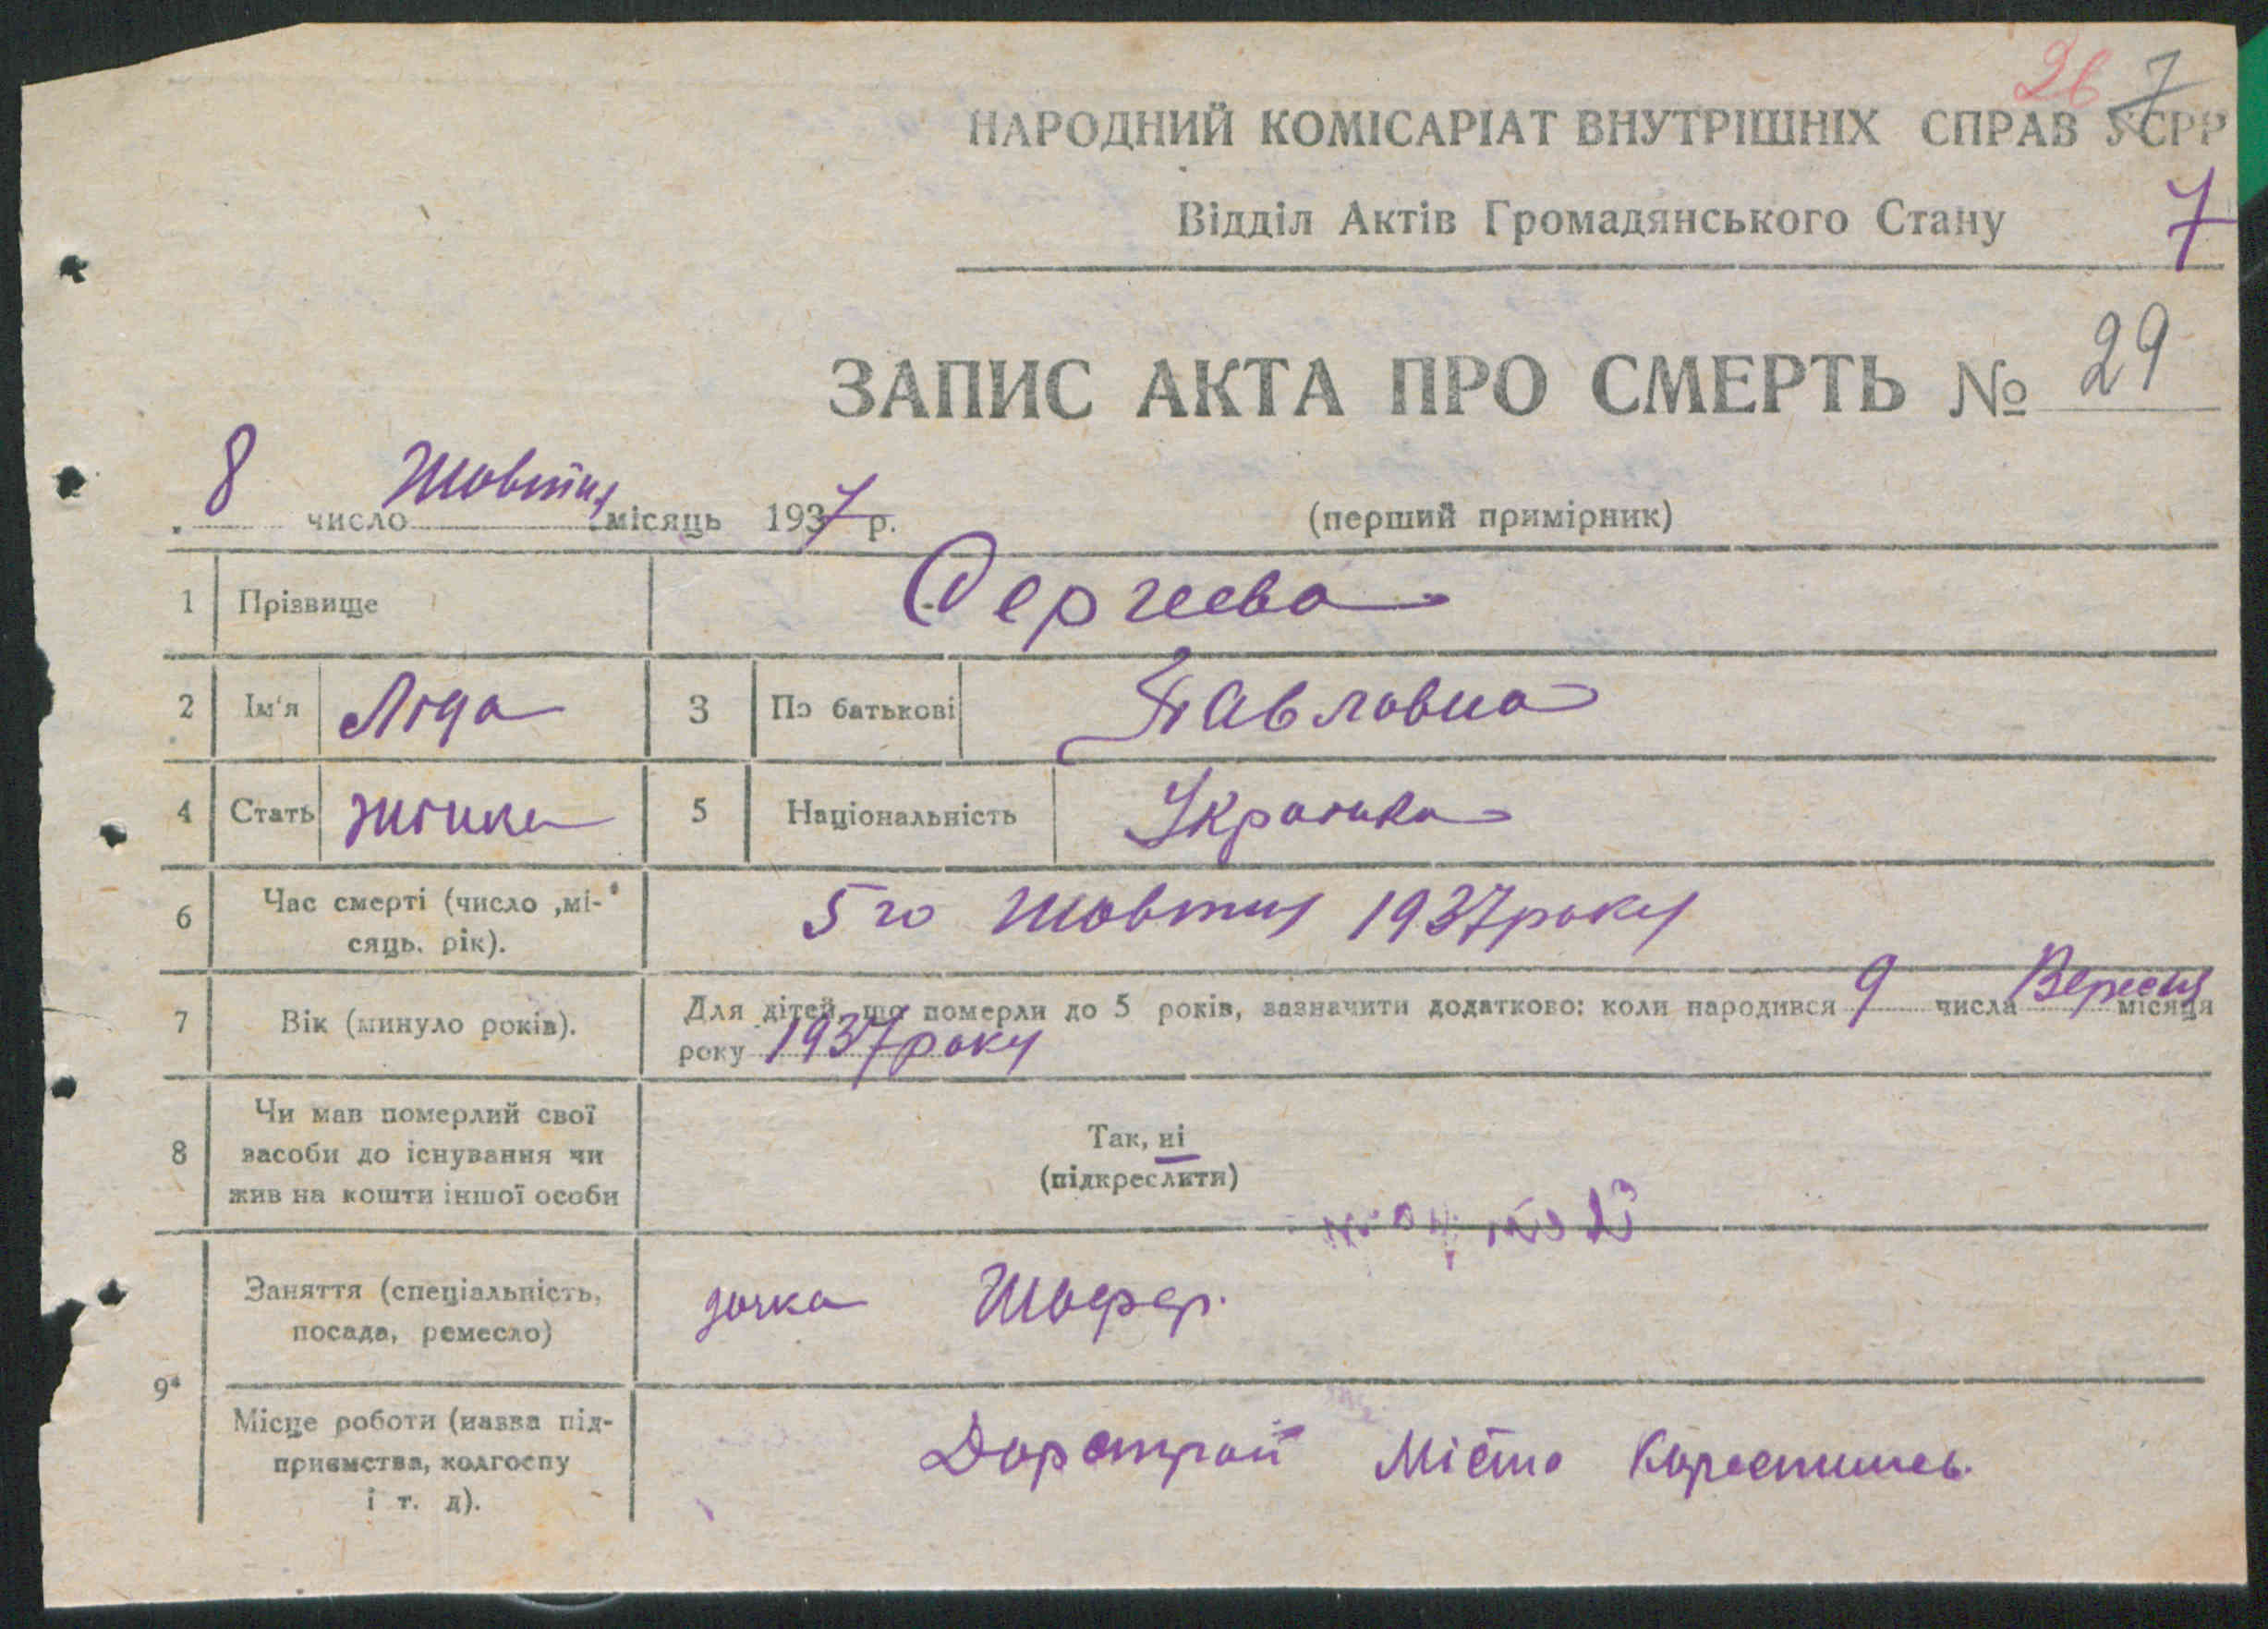 26 7
НАРОДНИЙ КОМІСАРІАТ ВНУТРІШНІХ СПРАВ УСРР
Відділ Актів Громадянського Стану 7
ЗАПИС АКТА ПРО СМЕРТЬ № 29
8 число Жовтня місяць 1937 р. (перший примірник)
1 Прізвище Сергеева
2 Ім'я Ліда 3 По батькові Павловна
4 Стать жінка 5 Національність Українка
6 Час смерті (число ,мі-
сяць. рік). 5го Жовтня 1937 року
7 Вік (минуло років). Для дітей, що померли до 5 років, зазначити додатково: коли народився 9 числа Вересня місяця
року 1937 року
8 Чи мав померлий свої
засоби до існування чи
жив на кошти іншої особи
Так, ні
(підкреслити)
9 Заняття (спеціальність,
посада, ремесло) дочка Шофер.
Місце роботи (назва під-
приємства, колгоспу
і т. д). Дорстрой Місто Коростишев.